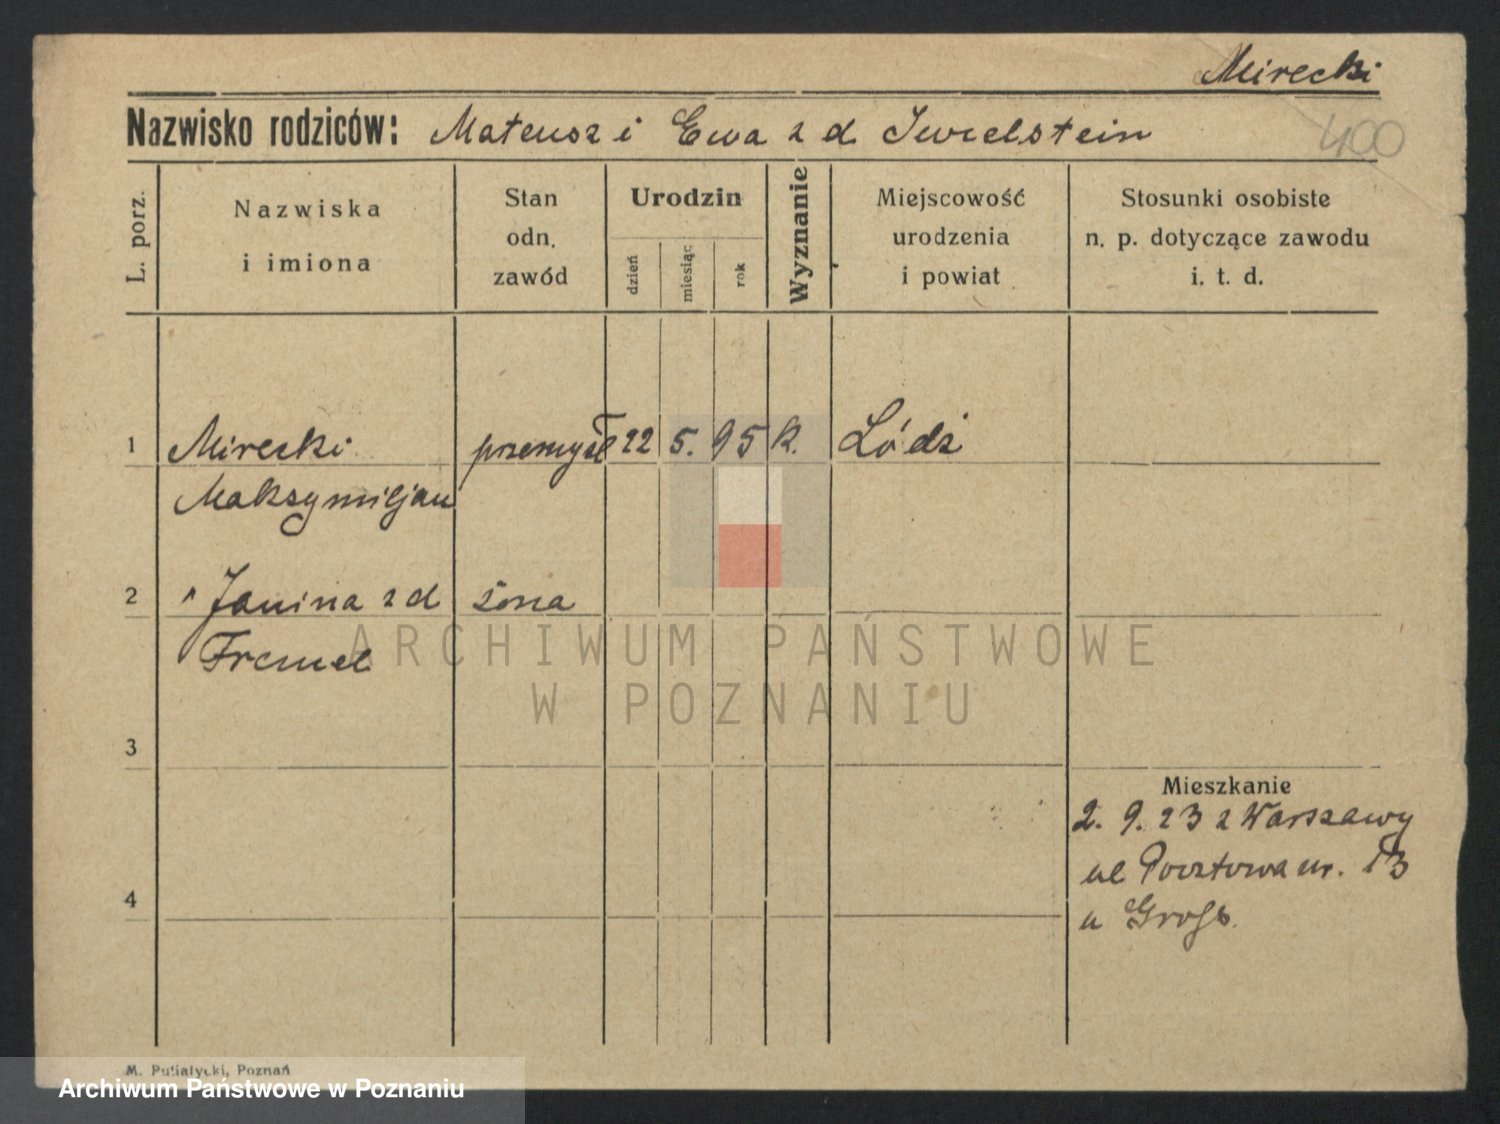 Mirecki
Nazwisko rodziców: Mateusz i Ewa z d
400
L. porz.
Nazwiska i imiona
Stan odn. zawód
Urodzin
dzień
miesiąc
rok
Wyznanie
Miejscowość urodzenia i powiat
Stosunki osobiste n. p. dotyczące zawodu i. t. d.
1 Mirecki przemysł 22 5. 95 k. Łódź
Maksymiljan
2 " Janina z d żona
Fremel
ARCHIWUM PAŃSTWOWE
W POZNANIU
3
Mieszkanie
2. 9. 23 z Warszawy
ul Pocztowa nr. 13
4
u Groß.
M. Putiatycki, Poznań
Archiwum Państwowe w Poznaniu